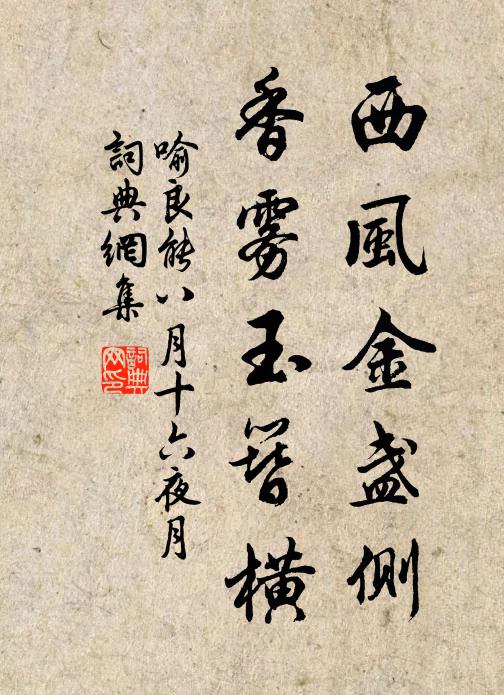 西風金盞側
香雾玉簪橫
喻良能八月十六夜月
詞典網集
詞典網印